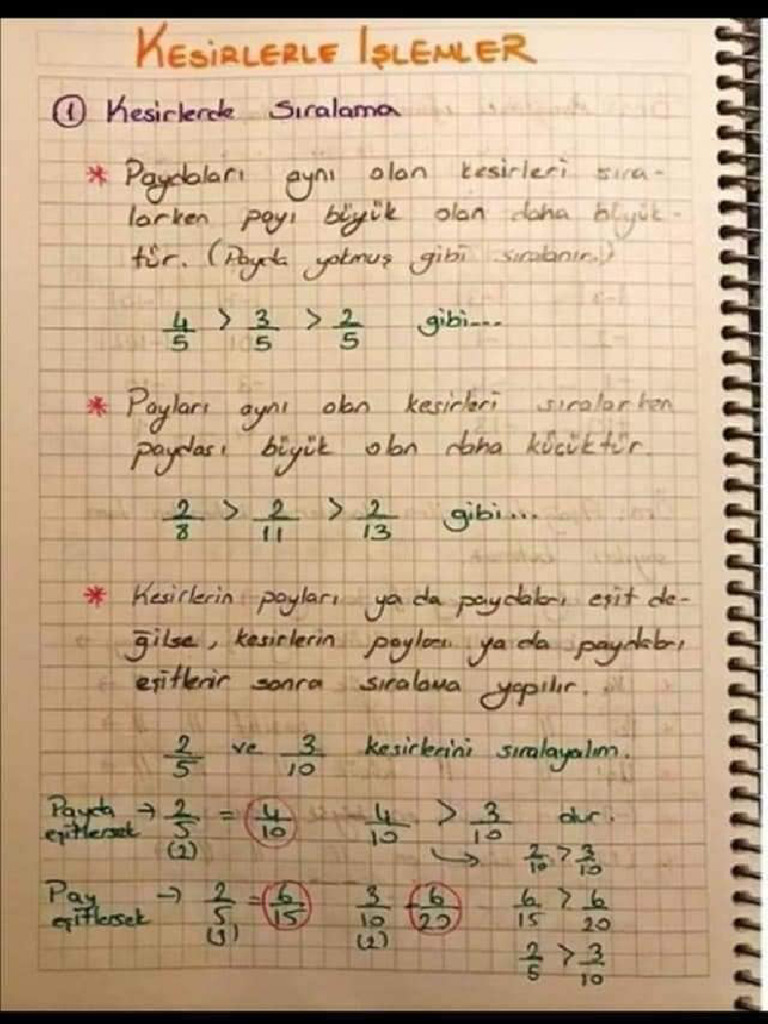 KESİRLERLE İŞLEMLER
① Kesirlerde Sıralama
* Paydaları aynı olan kesirleri sıra-
larken payı büyük olan daha büyük-
tür. (Payda yokmuş gibi sıralanır.)
4/5 > 3/5 > 2/5 gibi...
* Payları aynı olan kesirleri sıralarken
paydası büyük olan daha küçüktür.
2/8 > 2/11 > 2/13 gibi...
* Kesirlerin payları ya da paydaları eşit de-
ğilse, kesirlerin payları ya da paydaları
eşitlenir sonra sıralama yapılır.
2/5 ve 3/10 kesirlerini sıralayalım.
Payda eşitlersek → 2/5 (2) = 4/10 4/10 > 3/10 dur.
↪ 2/10 > 3/10
Pay eşitlersek → 2/5 (3) = 6/15 3/10 (2) = 6/20 6/15 > 6/20
2/5 > 3/10